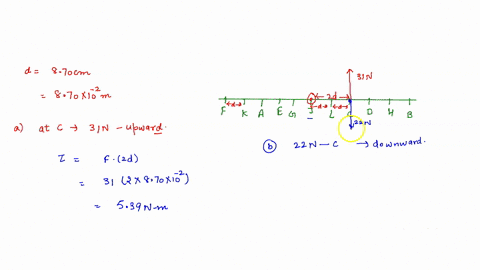 d = 8.70cm
= 8.70×10⁻² m
a) at C → 31N - upward.
τ = F.(2d)
= 31 (2 × 8.70×10⁻²)
= 5.39 N-m
31N
← 2d →
←d→ ←d→ ←d→
F K A E G J L C D H B
22N
b 22N - C → downward.